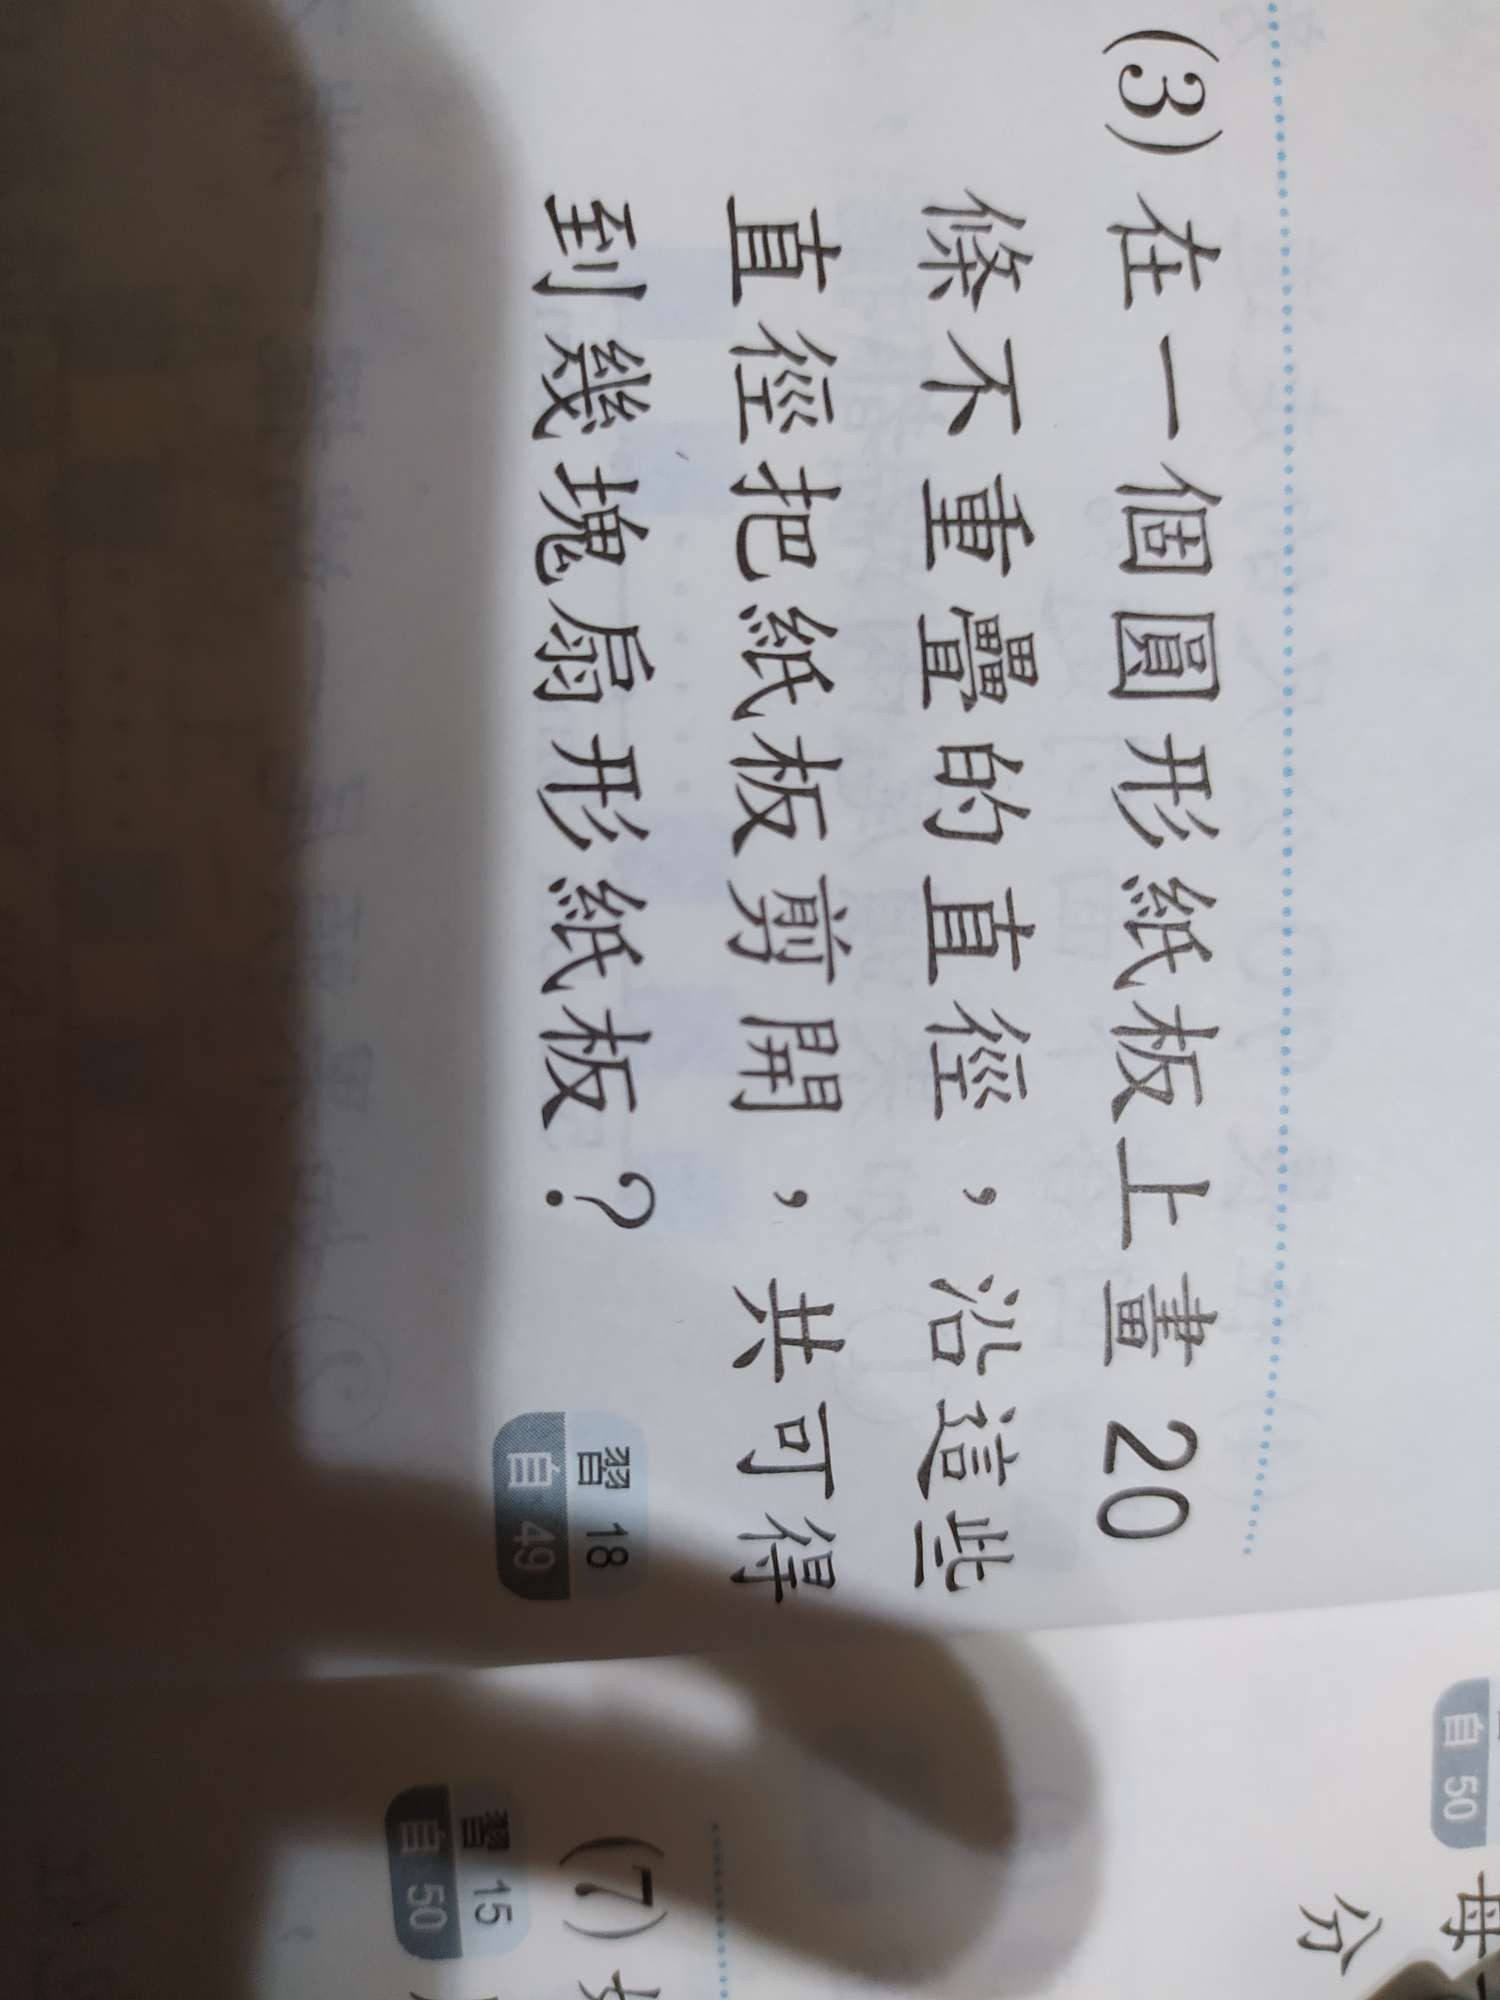 (3) 在一個圓形紙板上畫 20
條不重疊的直徑，沿這些
直徑把紙板剪開，共可得
到幾塊扇形紙板？
習 18
自 49
自 50
習 15
自 50
(7)
分